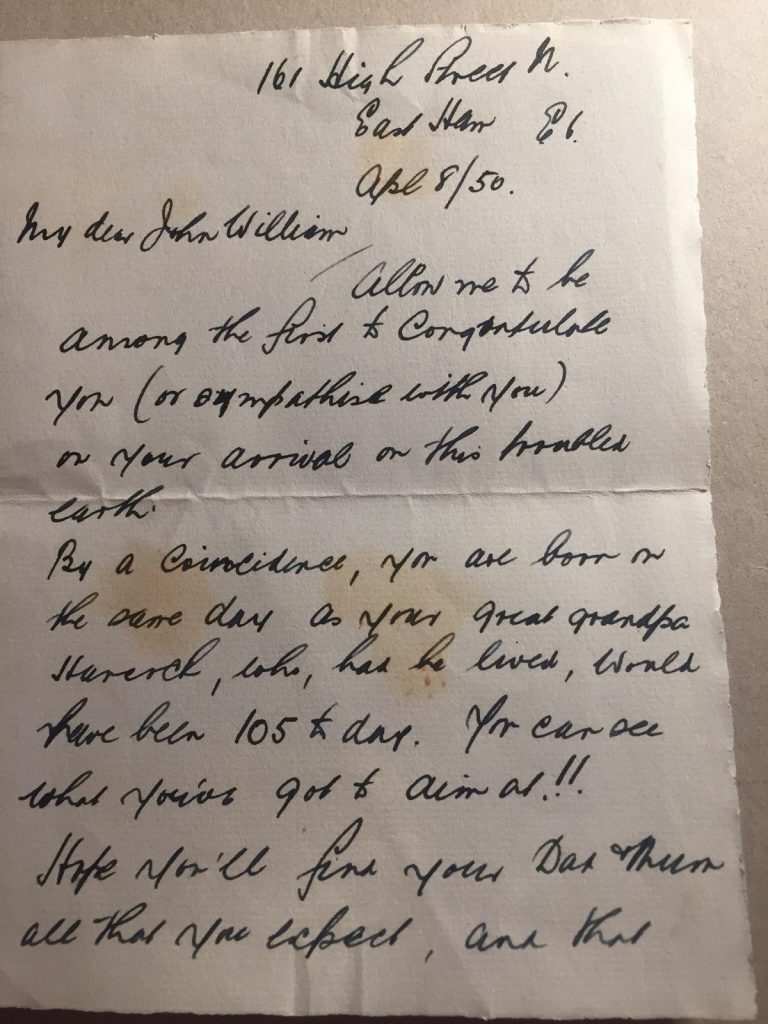 161 High Street N.
East Ham E6.
Apl 8/50.
My dear John William
Allow me to be
among the first to Congratulate
you (or sympathise with you)
on your arrival on this troubled
earth.
By a Coincidence, you are born on
the same day as your great grandpa
Hancock, who, had he lived, would
have been 105 to day. You can see
what you've got to aim at!!
Hope you'll find your Dad & Mum
all that you expect, and that